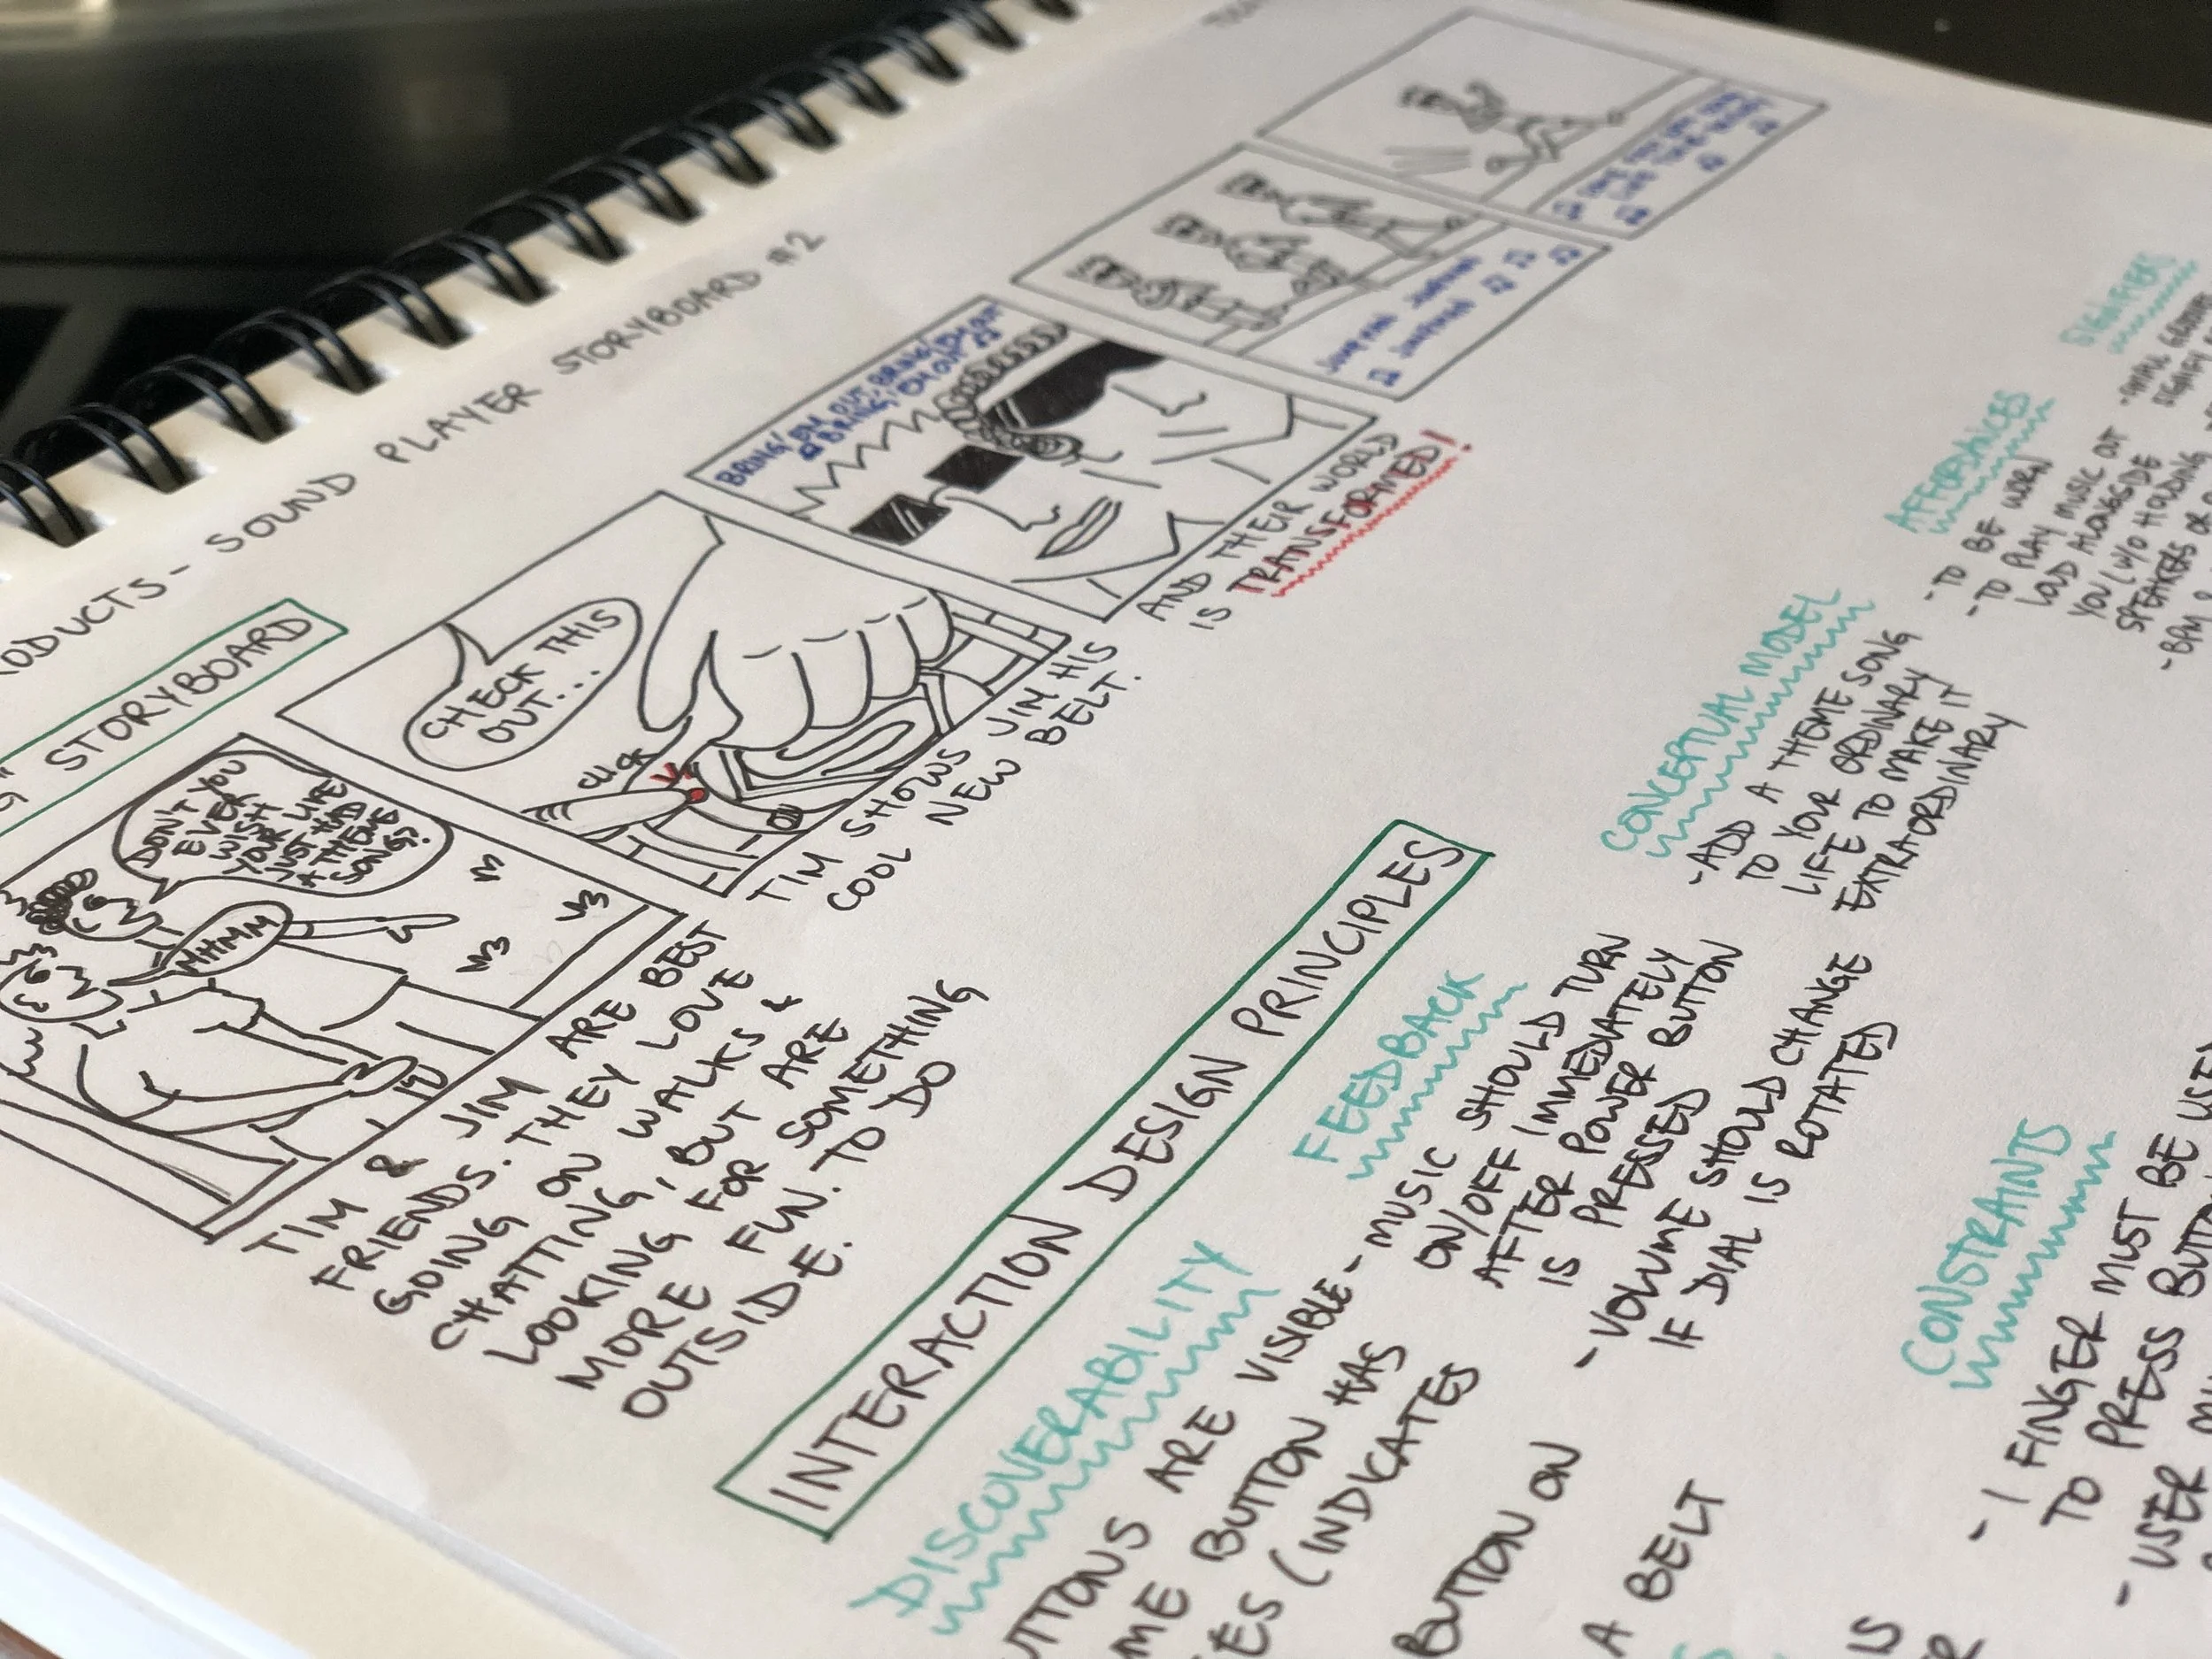 SOUND PLAYER STORYBOARD #2
STORYBOARD
DON'T YOU
EVER
WISH
YOUR LIFE
JUST HAD
A THEME
SONG?
MHMM
TIM & JIM ARE BEST
FRIENDS. THEY LOVE
GOING ON WALKS &
CHATTING, BUT ARE
LOOKING FOR SOMETHING
MORE FUN TO DO
OUTSIDE.
CHECK THIS
OUT...
CLICK
TIM SHOWS JIM HIS
COOL NEW BELT.
BRING 'EM OUT, BRING 'EM OUT
BRING 'EM OUT
AND THEIR WORLD
IS TRANSFORMED!
INTERACTION DESIGN PRINCIPLES
DISCOVERABILITY
ARE VISIBLE
BUTTON HAS
(INDICATES
BUTTON ON
A BELT
IS
FEEDBACK
- MUSIC SHOULD TURN
ON/OFF IMMEDIATELY
AFTER POWER BUTTON
IS PRESSED
- VOLUME SHOULD CHANGE
IF DIAL IS ROTATED
CONCEPTUAL MODEL
- ADD A THEME SONG
TO YOUR ORDINARY
LIFE TO MAKE IT
EXTRAORDINARY
CONSTRAINTS
- 1 FINGER MUST BE USED
TO PRESS
- USER
AFFORDANCES
- TO BE WORN
- TO PLAY MUSIC OUT
LOUD ALONGSIDE
YOU (W/O HOLDING
SPEAKERS OR
SIGNIFIERS